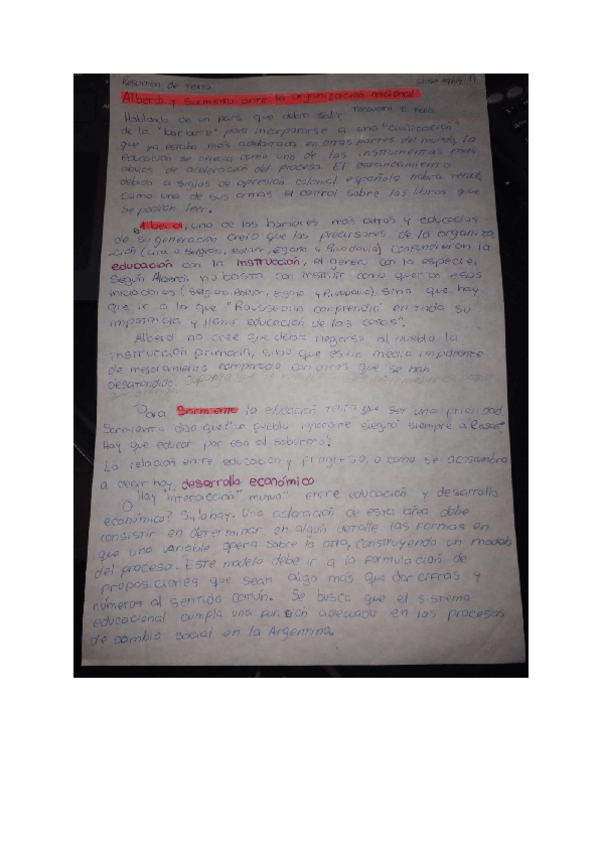 Resumen de texto
Alberdi y Sarmiento ante la organización nacional
Hablando de un país que debía salir
de la "barbarie" para incorporarse a una "civilización"
que ya estaba más adelantada en otras partes del mundo, la
educación se ofrecía como uno de los instrumentos más
obvios de aceleración del proceso. El oscurantismo
debido a siglos de opresión colonial española había tenido,
como una de sus armas el control sobre los libros que
se podían leer.
Alberdi, uno de los hombres más cultos y educados
de su generación creía que los precursores de la organiza
ción (cita a Belgrano, Bolívar, Egaña y Rivadavia) confundieron la
educación con la instrucción, el género con la especie.
Según Alberdi no basta con instruir como querían esos
iniciadores (Belgrano, Bolívar, Egaña y Rivadavia) sino que hay
que ir a lo que "Rousseau comprendió en toda su
importancia y llamó educación de las cosas".
Alberdi no cree que deba negarse al pueblo la
instrucción primaria, sino que es un medio impotente
de mejoramiento comparado con otros que se han
desatendido.
Para Sarmiento la educación tenía que ser una prioridad.
Sarmiento dijo que "un pueblo ignorante elegirá siempre a Rosas"
Hay que educar por eso al soberano!
La relación entre educación y progreso, o como se acostumbra
a decir hoy, desarrollo económico
Hay "interacción" mutua entre educación y desarrollo
económico? Si, la hay. Una aclaración de esta índole debe
consistir en determinar en algún detalle las formas en
que una variable opera sobre la otra, construyendo un modelo
del proceso. Este modelo debe ir a la formulación de
proposiciones que sean algo más que dar cifras y
números al sentido común. Se busca que el sistema
educacional cumpla una función adecuada en los procesos
de cambio social en la Argentina.